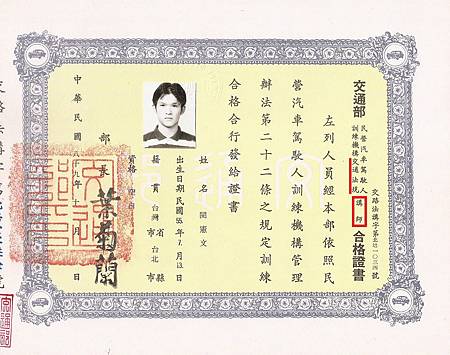 交通部
民營汽車駕駛
訓練機構交通法規
講師
合格證書
左列人員經本部依照民
營汽車駕駛人訓練機構管理
辦法第二十二條之規定訓練
合格合行發給證書
姓名
閻憲文
出生日期民國55年7月13日
籍貫台灣省台北縣市
資格
部長 葉菊蘭
中華民國八十九年十一月 日